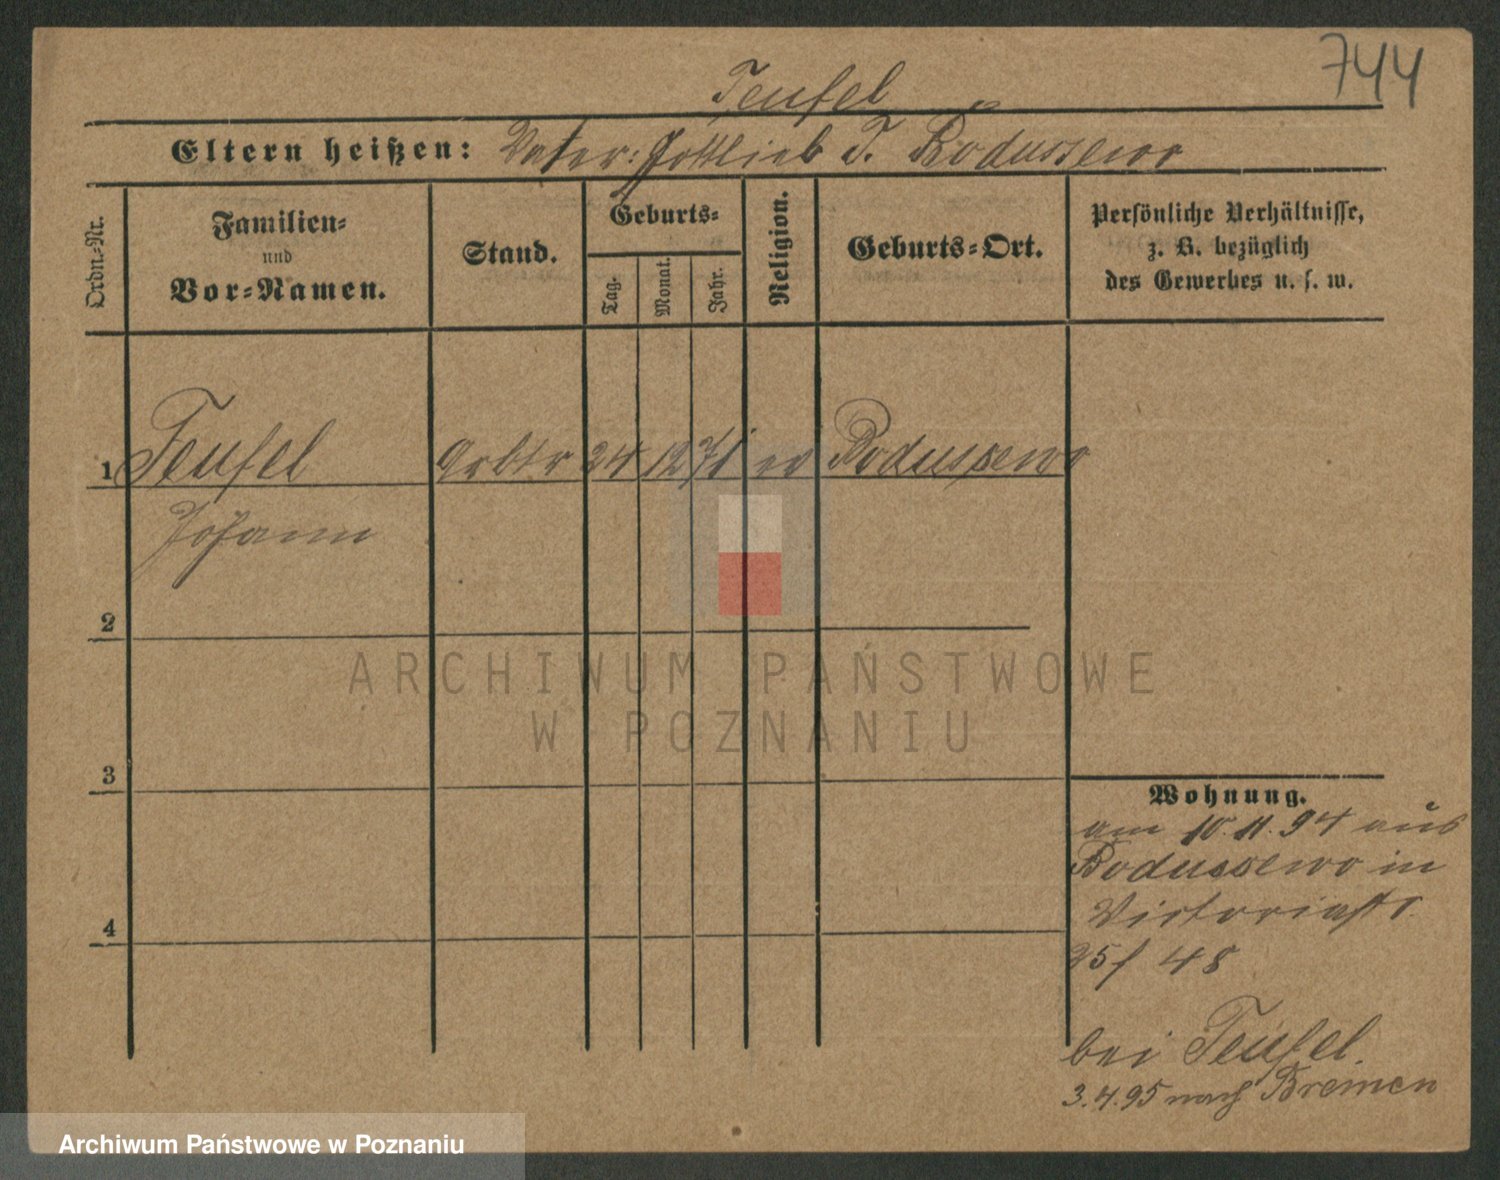 744
Teufel
Eltern heißen: Vater: Gottlieb T. Bodussewo
Ordn.=Nr.
Familien=
und
Vor=Namen.
Stand.
Geburts=
Tag.
Monat.
Jahr.
Religion.
Geburts=Ort.
Persönliche Verhältnisse,
z. B. bezüglich
des Gewerbes u. s. w.
1 Teufel Arbtr 24 12 71 ev Bodussewo
Johann
2
3
4
Wohnung.
am 10.11.94 aus
Bodussewo in
Victoriastr.
25 / 48
bei Teufel.
3.4.95 nach Bremen
ARCHIWUM PAŃSTWOWE
W POZNANIU
Archiwum Państwowe w Poznaniu